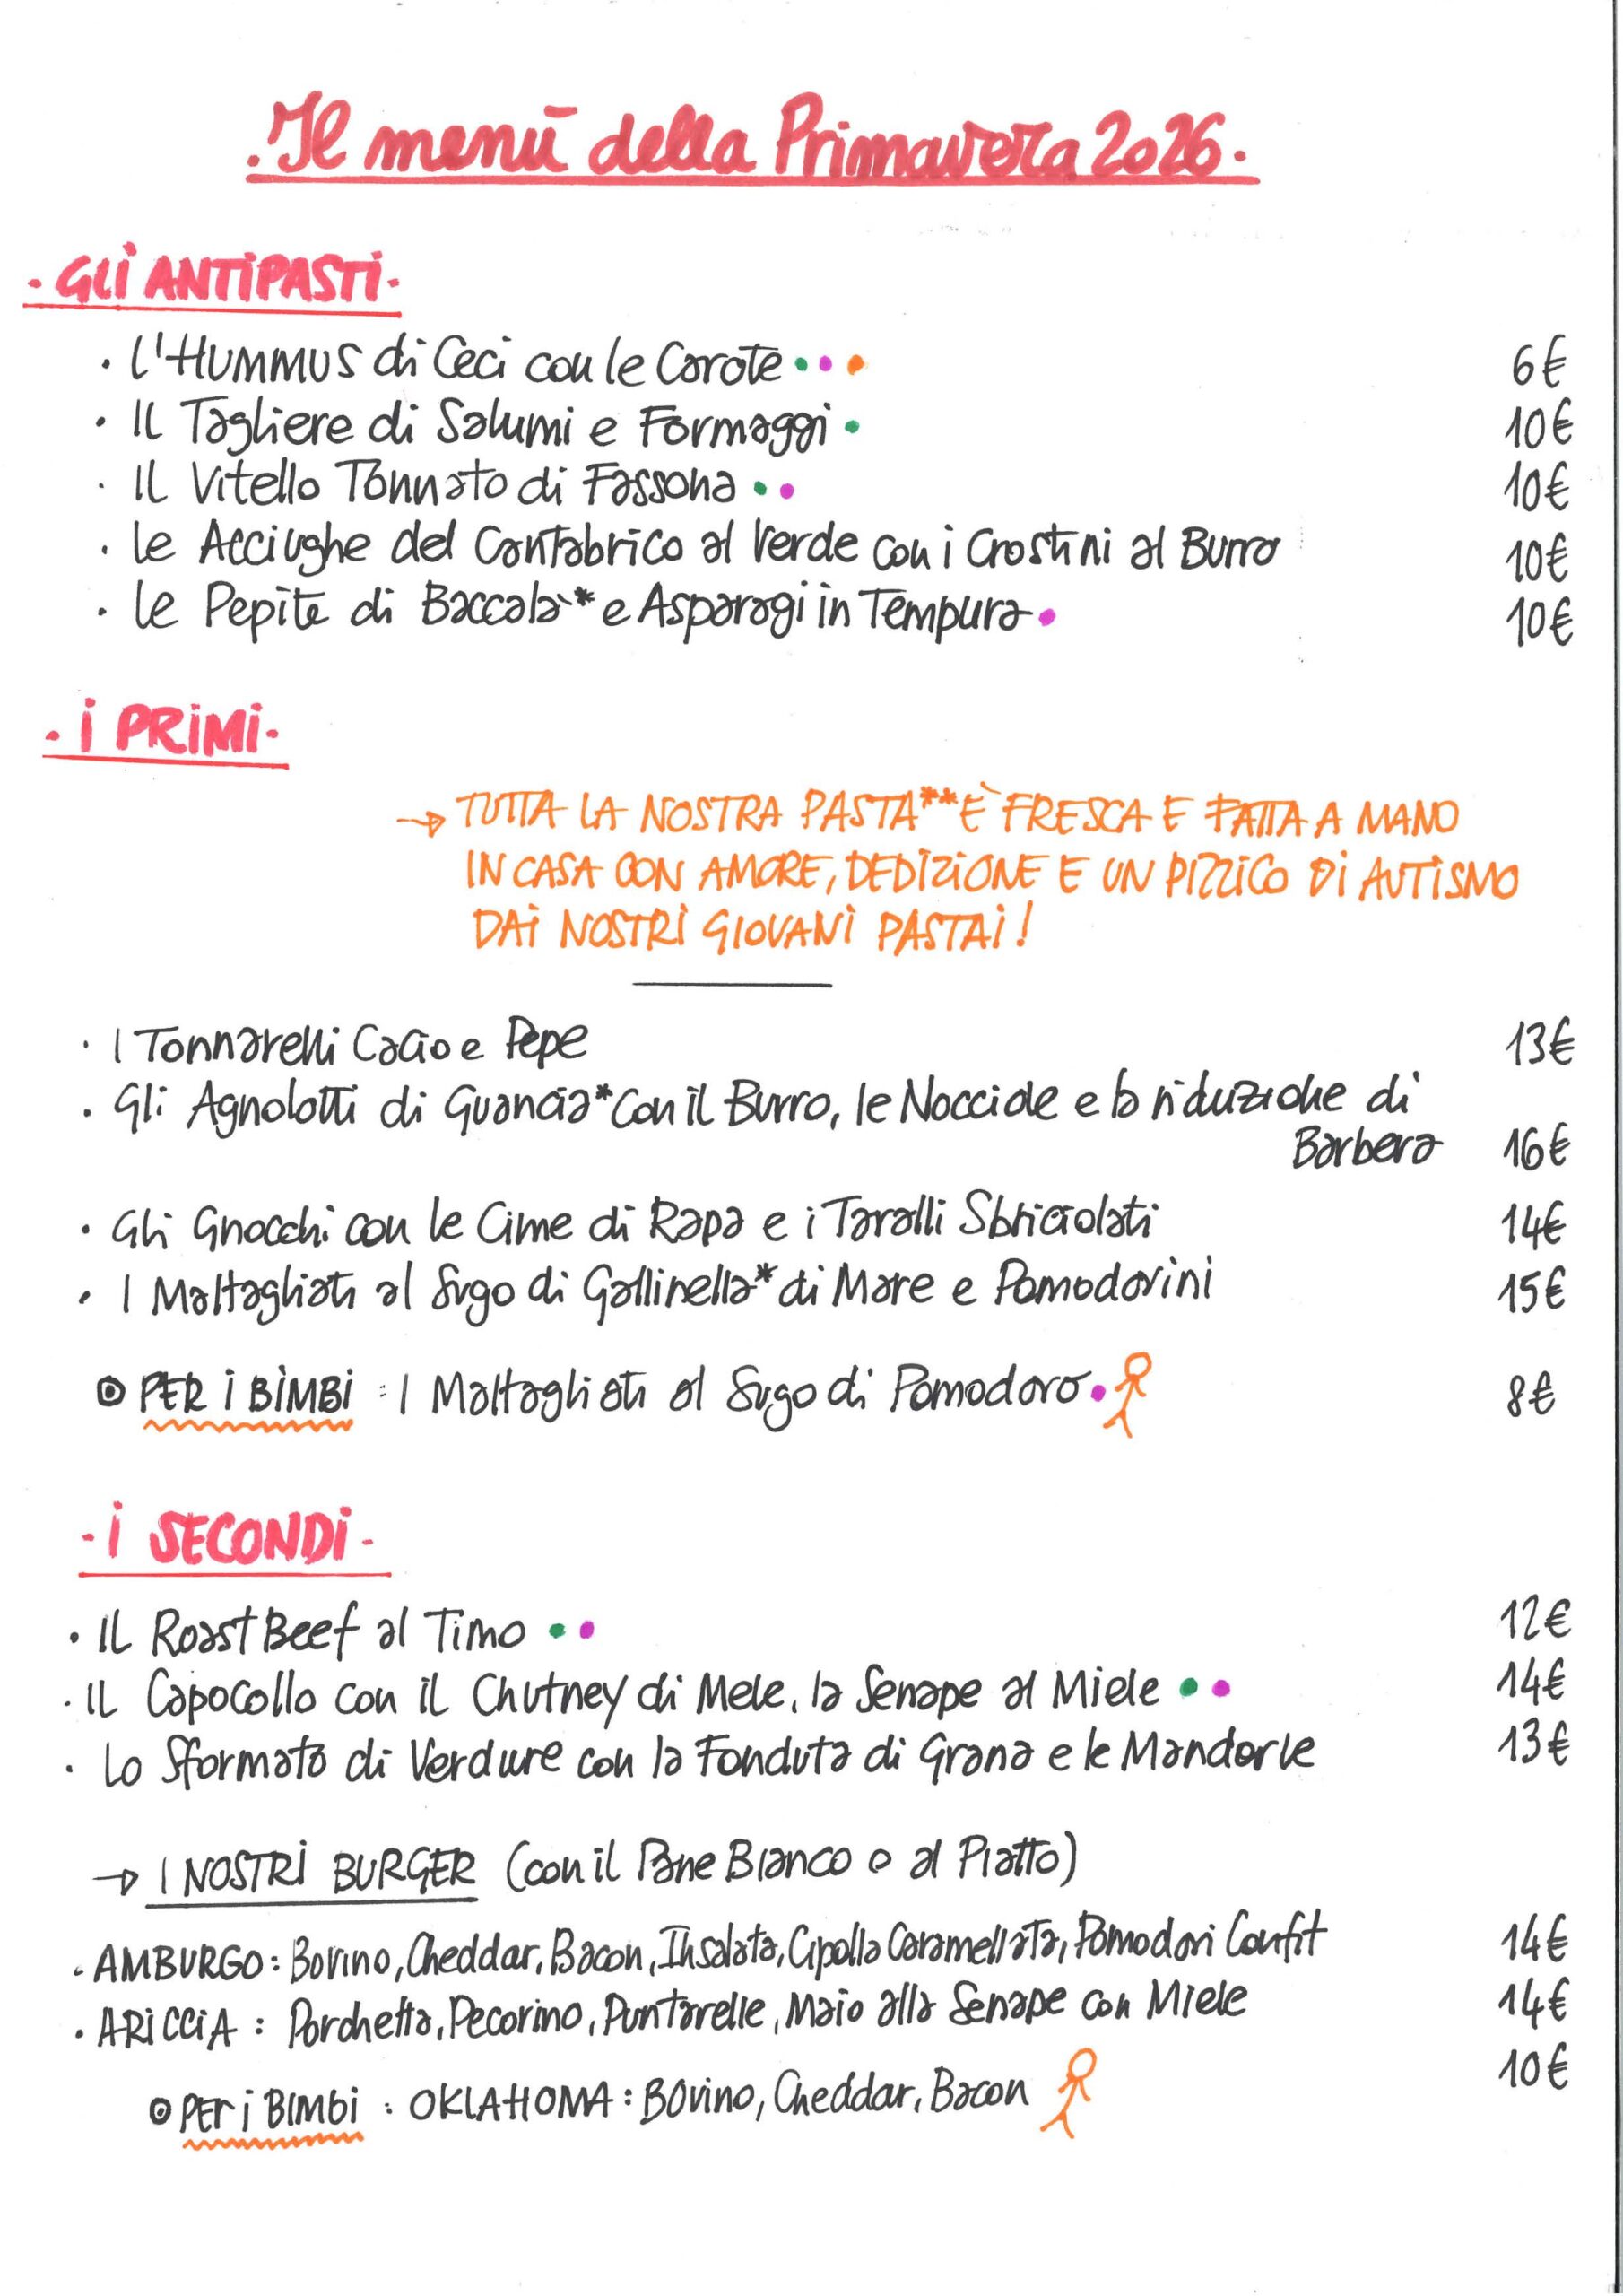 .Il menù della Primavera 2026.
- GLI ANTIPASTI -
· L'HUMMUS di Ceci con le Carote 6€
· Il Tagliere di Salumi e Formaggi 10€
· Il Vitello Tonnato di Fassona 10€
· Le Acciughe del Cantabrico al Verde con i Crostini al Burro 10€
· Le Pepite di Baccalà* e Asparagi in Tempura 10€
- I PRIMI -
→ TUTTA LA NOSTRA PASTA** È FRESCA E FATTA A MANO
IN CASA CON AMORE, DEDIZIONE E UN PIZZICO DI AUTISMO
DAI NOSTRI GIOVANI PASTAI!
· I Tonnarelli Cacio e Pepe 13€
· Gli Agnolotti di Guancia* con il Burro, le Nocciole e la riduzione di
Barbera 16€
· Gli Gnocchi con le Cime di Rapa e i Taralli Sbriciolati 14€
· I Maltagliati al Sugo di Gallinella* di Mare e Pomodorini 15€
⊙ PER I BIMBI : I Maltagliati al Sugo di Pomodoro 8€
- I SECONDI -
· Il Roast Beef al Timo 12€
· Il Capocollo con il Chutney di Mele, la Senape al Miele 14€
· Lo Sformato di Verdure con la Fonduta di Grana e le Mandorle 13€
→ I NOSTRI BURGER (con il Pane Bianco o al Piatto)
· AMBURGO: Bovino, Cheddar, Bacon, Insalata, Cipolla Caramellata, Pomodori Confit 14€
· ARICCIA: Porchetta, Pecorino, Puntarelle, Maio alla Senape con Miele 14€
⊙ PER I BIMBI : OKLAHOMA: Bovino, Cheddar, Bacon 10€